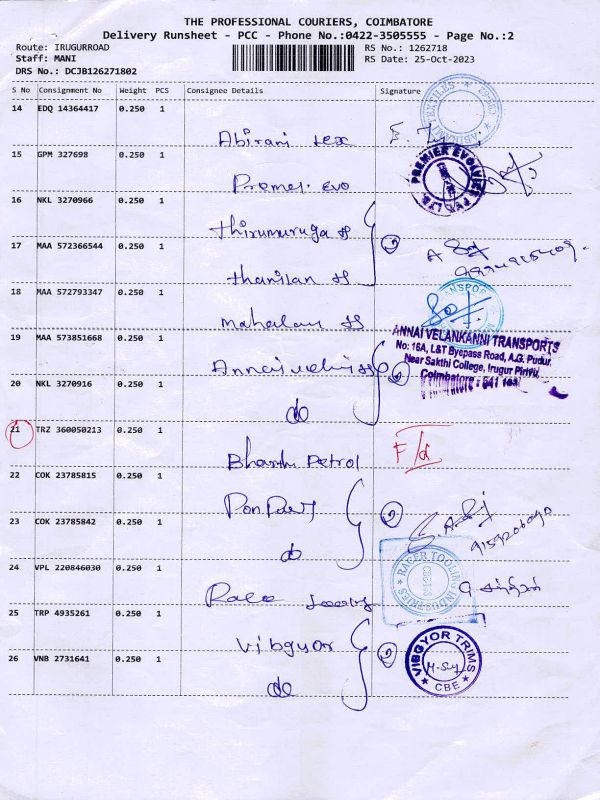 THE PROFESSIONAL COURIERS, COIMBATORE
Delivery Runsheet - PCC - Phone No.:0422-3505555 - Page No.:2
Route: IRUGURROAD
Staff: MANI
DRS No.: DCJB126271802
RS No.: 1262718
RS Date: 25-Oct-2023
S No Consignment No Weight PCS Consignee Details Signature
14 EDQ 14364417 0.250 1
Abirami tex
ABIRAMI TEXTILES
15 GPM 327698 0.250 1
Premer. Evo
PREMIER EVOLVICS PVT. LTD.
16 NKL 3270966 0.250 1
Thirumuruga
17 MAA 572366544 0.250 1
thamilan
18 MAA 572793347 0.250 1
19 MAA 573851668 0.250 1
ANNAI VELANKANNI TRANSPORTS
No: 16A, L&T Byepass Road, A.G. Pudur,
Near Sakthi College, Irugur Pirivu,
Coimbatore - 641
20 NKL 3270916 0.250 1
do
21 TRZ 360050213 0.250 1
Bharath Petrol
22 COK 23785815 0.250 1
23 COK 23785842 0.250 1
do
24 VPL 220846030 0.250 1
RACER TOOLING INDUSTRIES
25 TRP 4935261 0.250 1
Vibgyor
VIBGYOR TRIMS
CBE
26 VNB 2731641 0.250 1
do